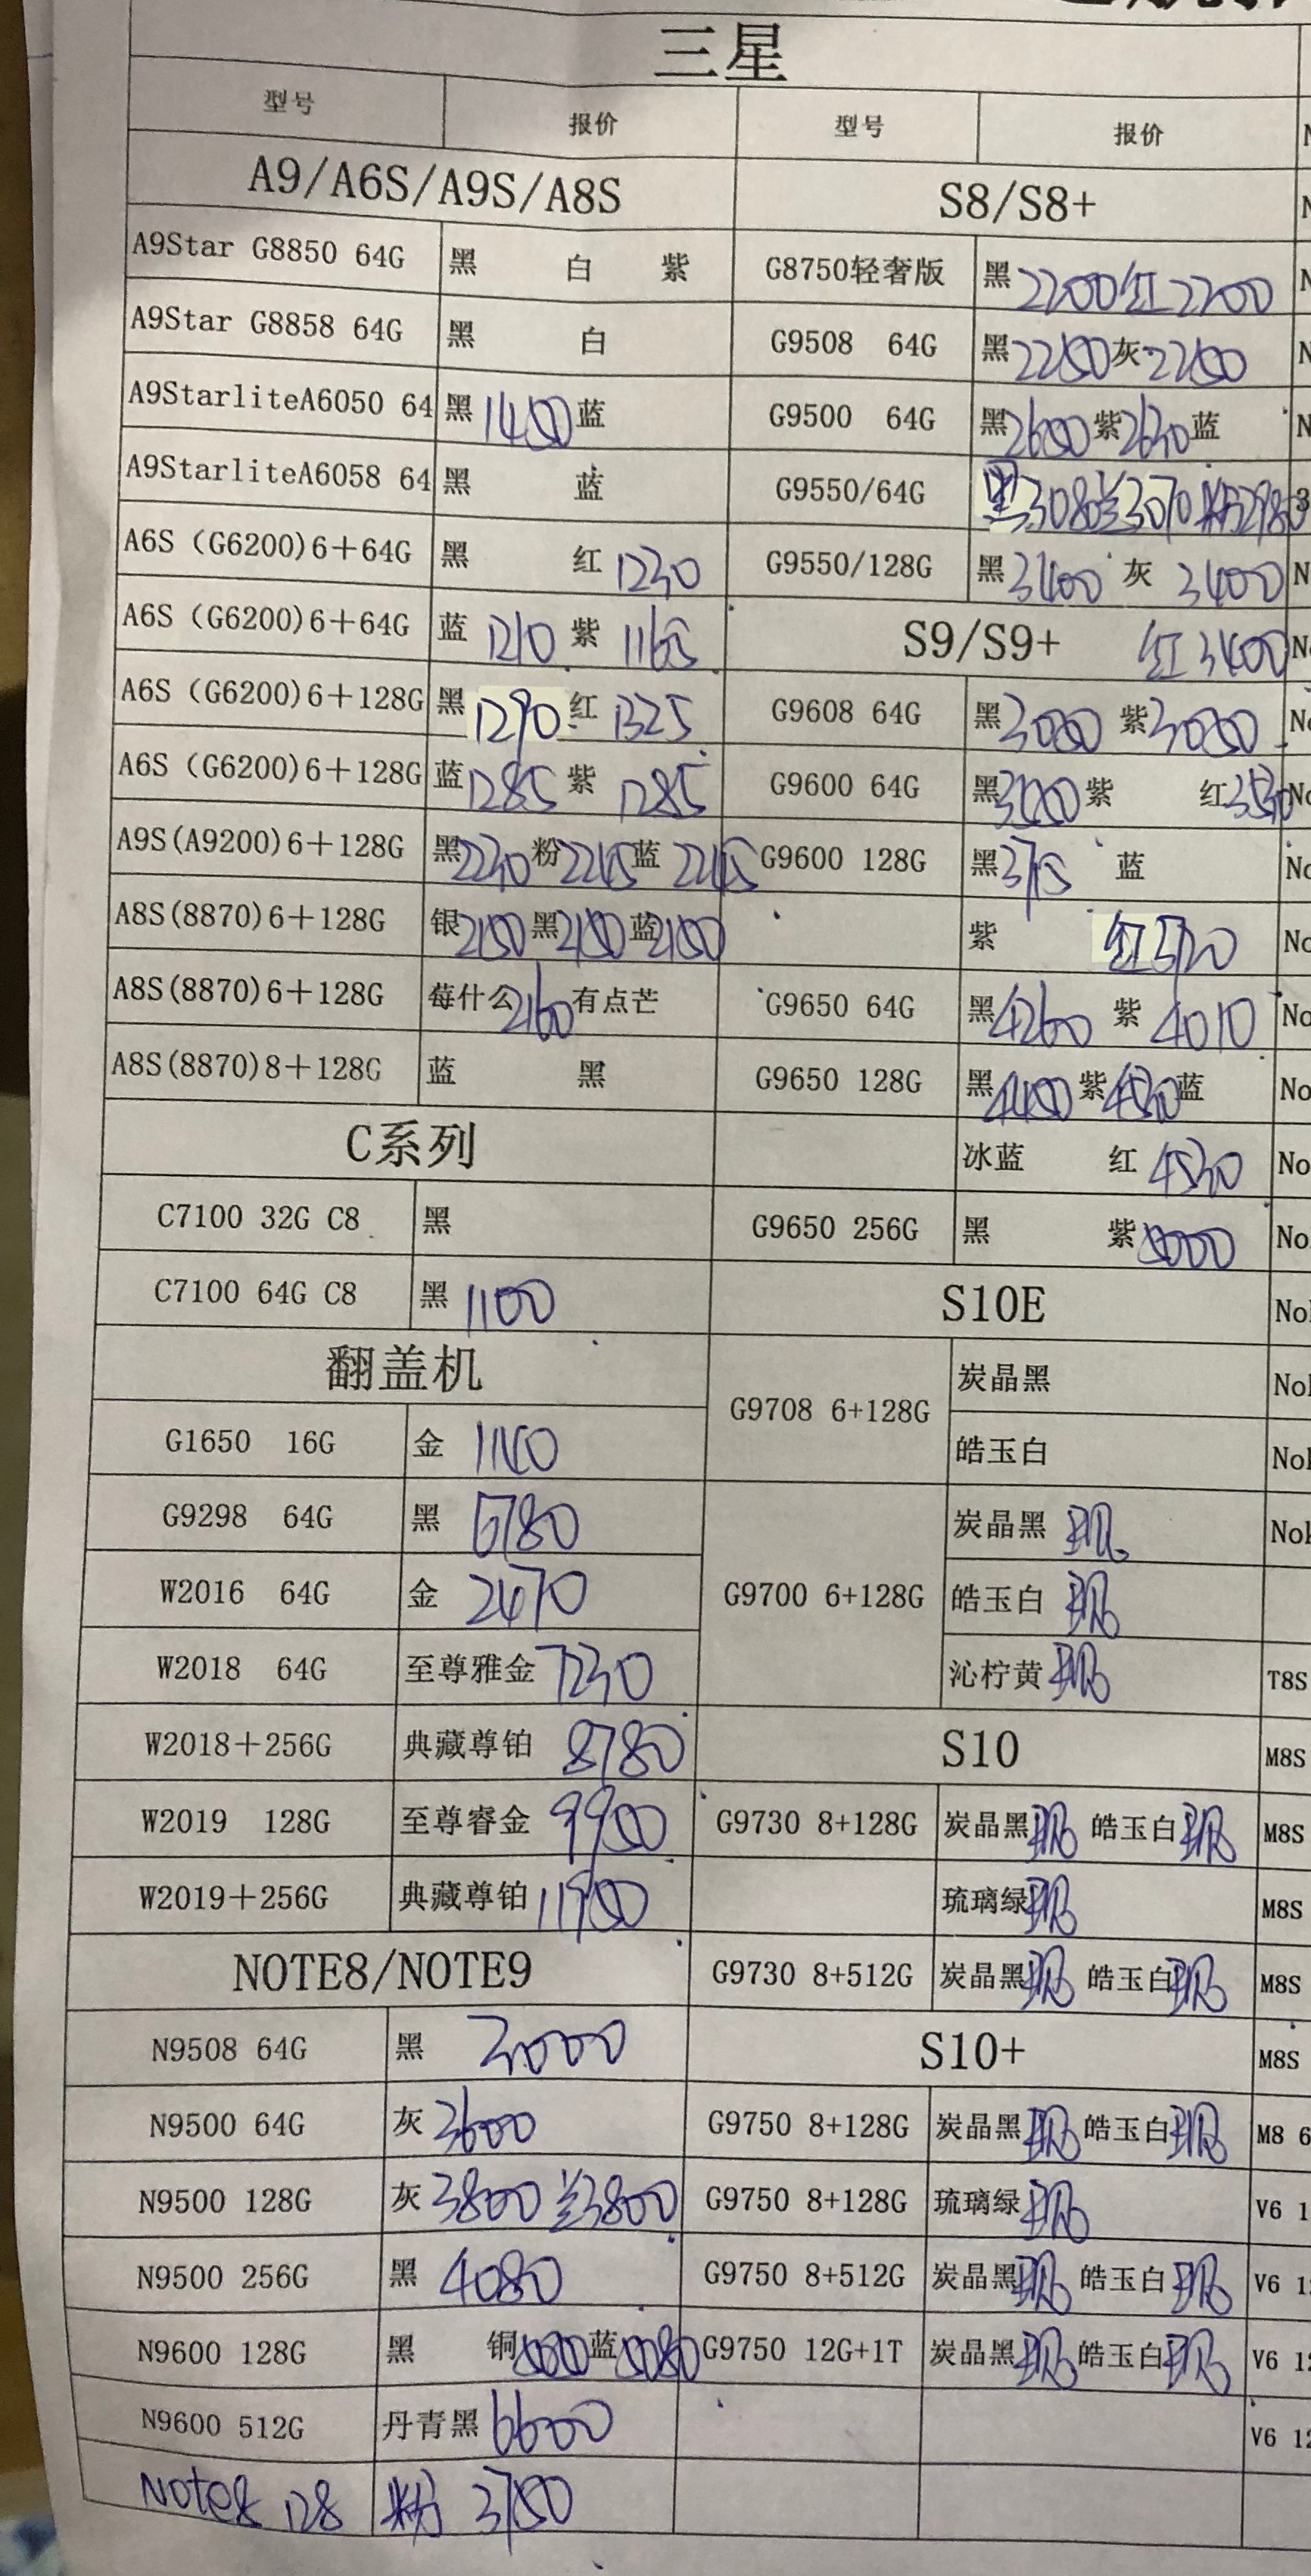 三星
型号 报价 型号 报价
A9/A6S/A9S/A8S S8/S8+
A9Star G8850 64G 黑 白 紫 G8750轻奢版 黑2200红2200
A9Star G8858 64G 黑 白 G9508 64G 黑2250灰2250
A9StarliteA6050 64 黑1450蓝 G9500 64G 黑2600紫2630蓝
A9StarliteA6058 64 黑 蓝 G9550/64G 黑3080兰3070粉2980
A6S (G6200)6+64G 黑 红1230 G9550/128G 黑3400 灰 3400
A6S (G6200)6+64G 蓝 1210 紫 1165 S9/S9+ 红3400
A6S (G6200)6+128G 黑1290 红 1325 G9608 64G 黑 紫
A6S (G6200)6+128G 蓝1285 紫 1285 G9600 64G 黑 紫 红
A9S(A9200)6+128G 黑2230粉2245蓝 2245 G9600 128G 黑 蓝
A8S(8870)6+128G 银2150黑2150蓝2150 紫 红
A8S(8870)6+128G 莓什么2160有点芒 G9650 64G 黑4260 紫 4010
A8S(8870)8+128G 蓝 黑 G9650 128G 黑 紫 蓝
C系列 冰蓝 红 4530
C7100 32G C8 黑 G9650 256G 黑 紫
C7100 64G C8 黑 1100 S10E
翻盖机 G9708 6+128G 炭晶黑
G1650 16G 金 皓玉白
G9298 64G 黑 G9700 6+128G 炭晶黑 现
W2016 64G 金 2470 皓玉白 现
W2018 64G 至尊雅金 7230 沁柠黄 现 T8S
W2018+256G 典藏尊铂 8780 S10 M8S
W2019 128G 至尊睿金 9900 G9730 8+128G 炭晶黑现 皓玉白现 M8S
W2019+256G 典藏尊铂 11900 琉璃绿现 M8S
NOTE8/NOTE9 G9730 8+512G 炭晶黑现 皓玉白现 M8S
N9508 64G 黑 3000 S10+ M8S
N9500 64G 灰 3600 G9750 8+128G 炭晶黑现 皓玉白现 M8 6
N9500 128G 灰 3800 兰3800 G9750 8+128G 琉璃绿现 V6 1
N9500 256G 黑 4080 G9750 8+512G 炭晶黑现 皓玉白现 V6 1
N9600 128G 黑 铜 蓝 G9750 12G+1T 炭晶黑现 皓玉白现 V6 12
N9600 512G 丹青黑 6600 V6 12
Note8 128 粉 3750